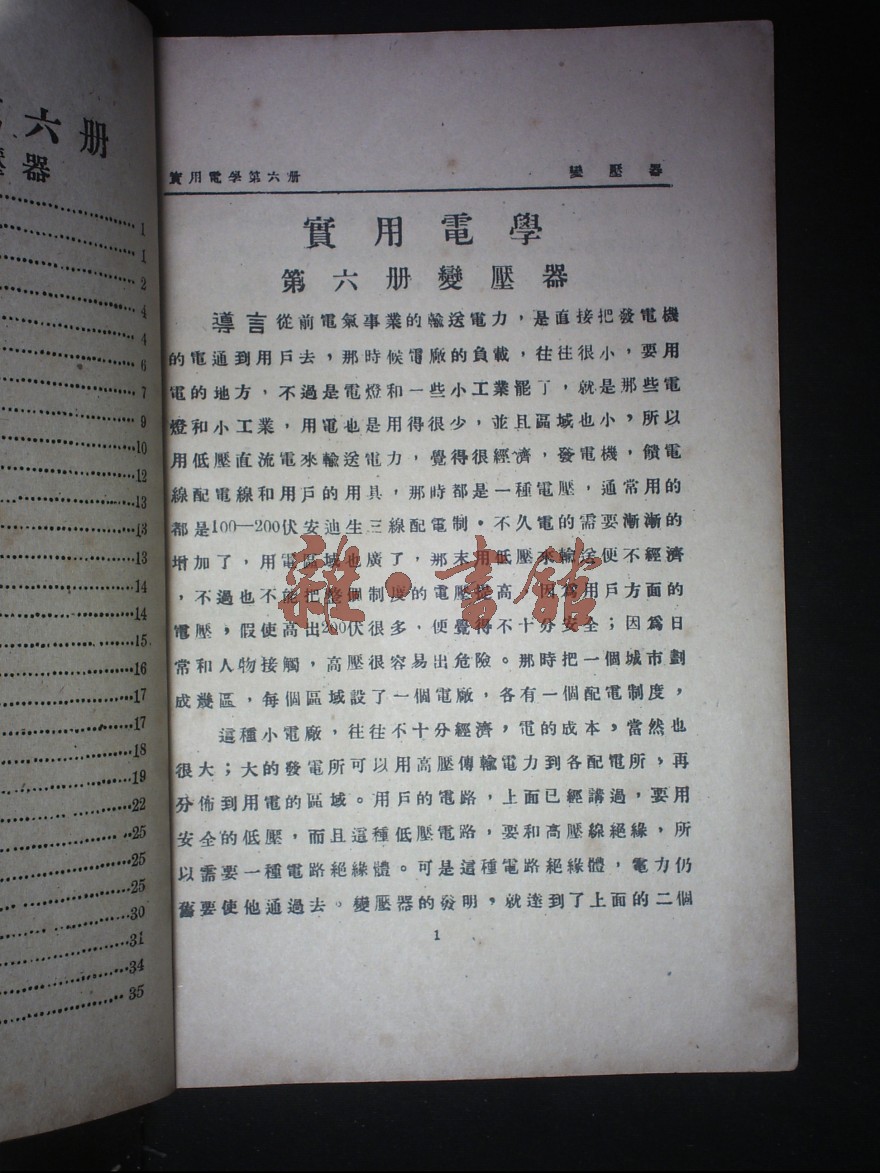 六册
器
1
1
2
4
4
6
7
9
10
12
13
13
13
14
14
15
16
17
17
18
19
22
25
25
25
30
31
34
35
實用電學第六册 變壓器
實用電學
第六册變壓器
導言 從前電氣事業的輸送電力，是直接把發電機
的電通到用戶去，那時候電廠的負載，往往很小，要用
電的地方，不過是電燈和一些小工業罷了，就是那些電
燈和小工業，用電也是用得很少，並且區域也小，所以
用低壓直流電來輸送電力，覺得很經濟，發電機，饋電
線配電線和用戶的用具，那時都是一種電壓，通常用的
都是100—200伏安迪生三線配電制。不久電的需要漸漸的
增加了，用電區域也廣了，那末用低壓來輸送便不經濟
，不過也不能把整個制度的電壓提高，因爲用戶方面的
電壓，假使高出200伏很多，便覺得不十分安全；因爲日
常和人物接觸，高壓很容易出危險。那時把一個城市劃
成幾區，每個區域設了一個電廠，各有一個配電制度，
這種小電廠，往往不十分經濟，電的成本，當然也
很大；大的發電所可以用高壓傳輸電力到各配電所，再
分佈到用電的區域。用戶的電路，上面已經講過，要用
安全的低壓，而且這種低壓電路，要和高壓線絕緣，所
以需要一種電路絕緣體。可是這種電路絕緣體，電力仍
舊要使他通過去。變壓器的發明，就達到了上面的二個
1
雜·書館